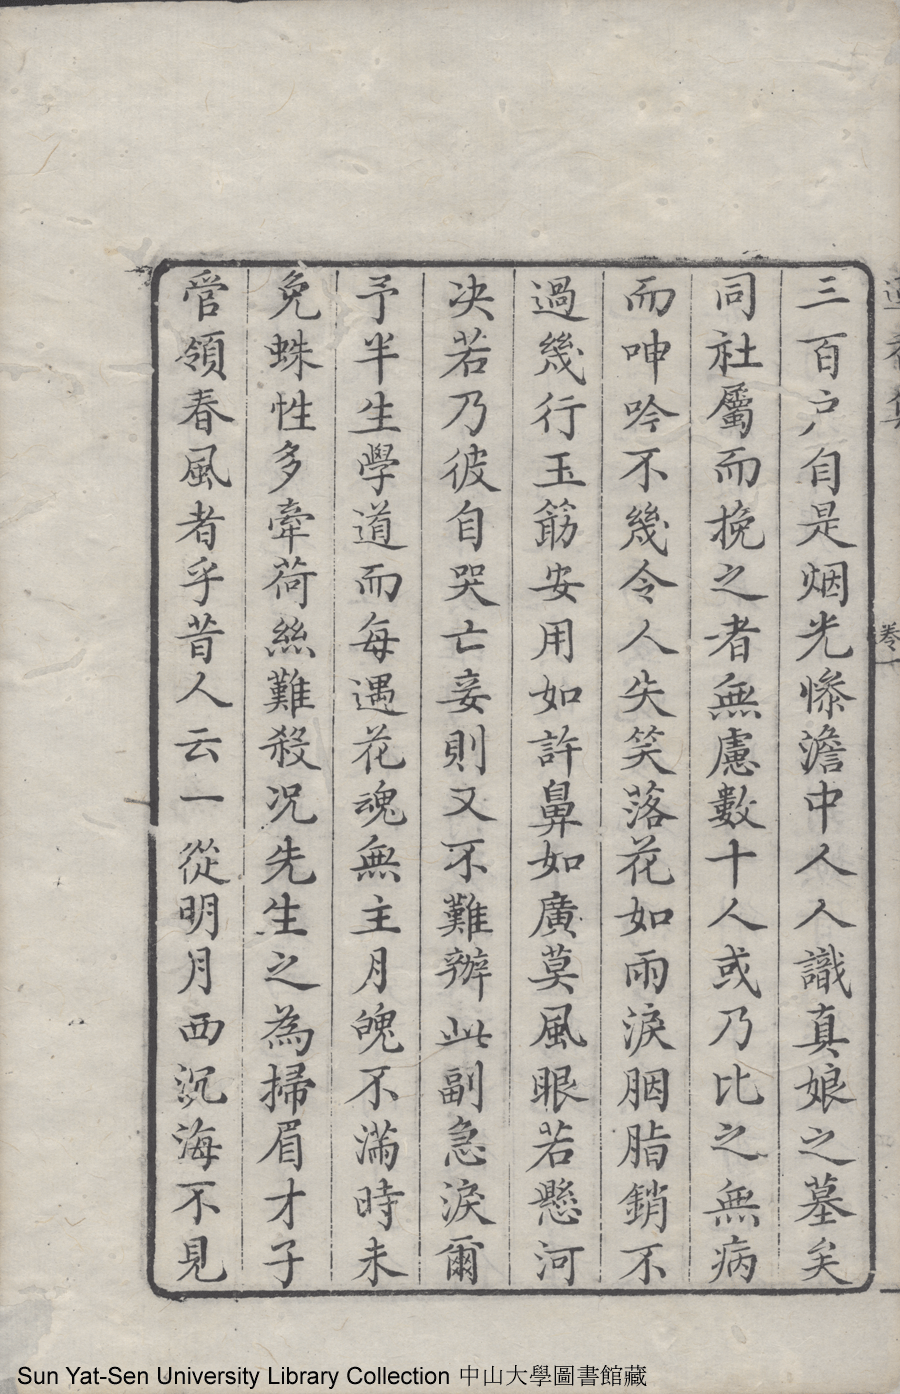 三百户自是烟光慘澹中人人識真娘之墓矣
同社屬而挽之者無慮數十人或乃比之無病
而呻吟不幾令人失笑落花如雨淚胭脂銷不
過幾行玉筯安用如許鼻如廣莫風眼若懸河
决若乃彼自哭亡妾則又不難辦此副急淚爾
予半生學道而每遇花魂無主月魄不滿時未
免蛛性多牽荷絲難殺况先生之為掃眉才子
管領春風者乎昔人云一從明月西沉海不見
卷一
Sun Yat-Sen University Library Collection 中山大學圖書館藏